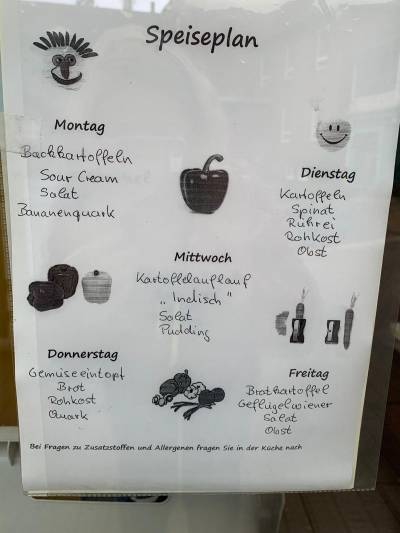 Speiseplan
Montag
Backkartoffeln
Sour Cream
Salat
Bananenquark
Dienstag
Kartoffeln
Spinat
Rührei
Rohkost
Obst
Mittwoch
Kartoffelauflauf
„Indisch"
Salat
Pudding
Donnerstag
Gemüseeintopf
Brot
Rohkost
Quark
Freitag
Bratkartoffel
Geflügelwiener
Salat
Obst
Bei Fragen zu Zusatzstoffen und Allergenen fragen Sie in der Küche nach